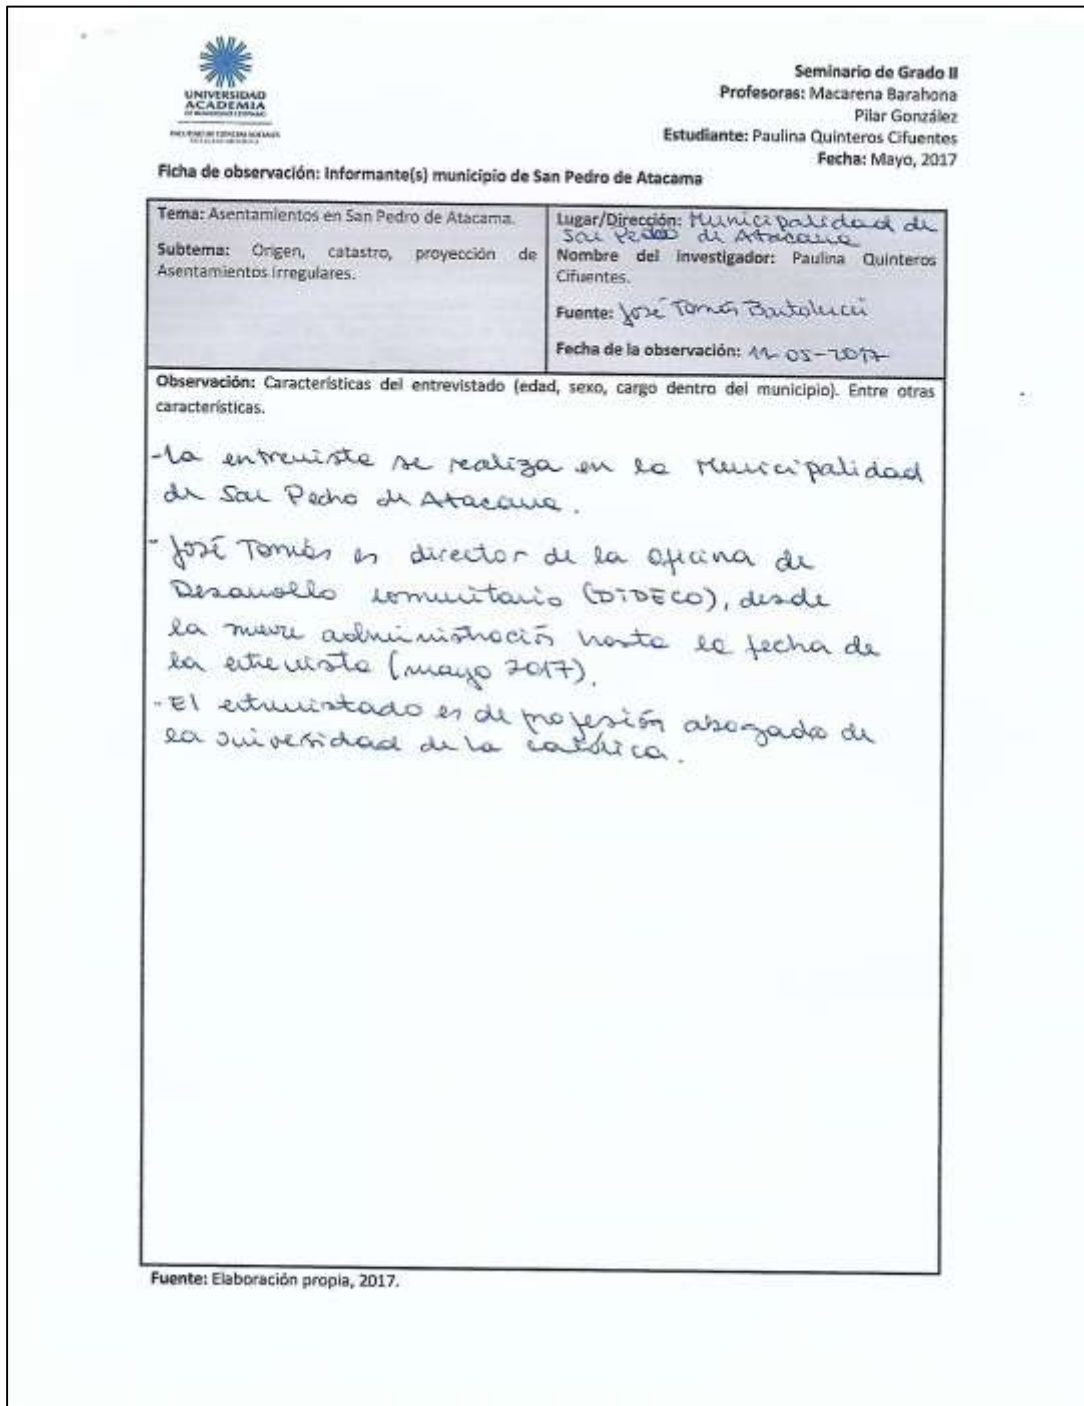 UNIVERSIDAD
ACADEMIA
DE HUMANISMO CRISTIANO
FACULTAD DE CIENCIAS SOCIALES
Seminario de Grado II
Profesoras: Macarena Barahona
Pilar González
Estudiante: Paulina Quinteros Cifuentes
Fecha: Mayo, 2017
Ficha de observación: Informante(s) municipio de San Pedro de Atacama
Tema: Asentamientos en San Pedro de Atacama.
Subtema: Origen, catastro, proyección de
Asentamientos Irregulares.
Lugar/Dirección: Municipalidad de
San Pedro de Atacama
Nombre del investigador: Paulina Quinteros
Cifuentes.
Fuente: José Tomás Bartolucci
Fecha de la observación: 11-05-2017
Observación: Características del entrevistado (edad, sexo, cargo dentro del municipio). Entre otras
características.
-La entrevista se realiza en la Municipalidad
de San Pedro de Atacama.
- José Tomás es director de la Oficina de
Desarrollo comunitario (DIDECO), desde
la nueva administración hasta la fecha de
la entrevista (mayo 2017).
- El entrevistado es de profesión abogado de
la universidad de la católica.
Fuente: Elaboración propia, 2017.